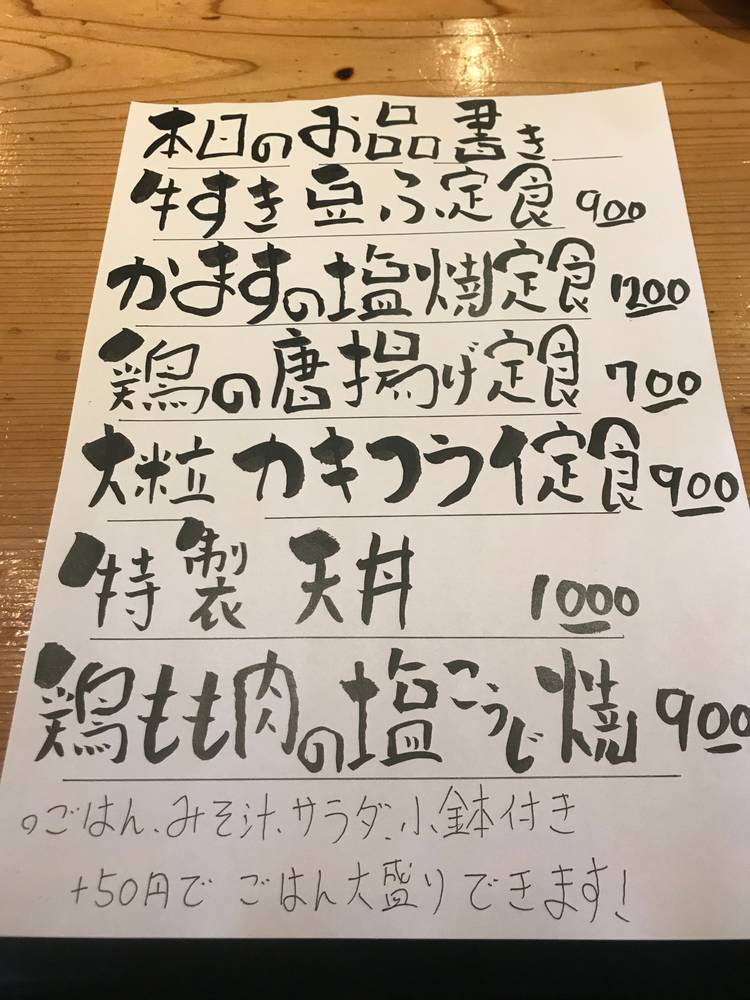 本日のお品書き
牛すき豆ふ定食 900
かますの塩焼定食 1200
鶏の唐揚げ定食 700
大粒 カキフライ定食 900
特製 天丼 1000
鶏もも肉の塩こうじ焼 900
○ごはん、みそ汁、サラダ、小鉢付き
+50円で ごはん大盛りできます!